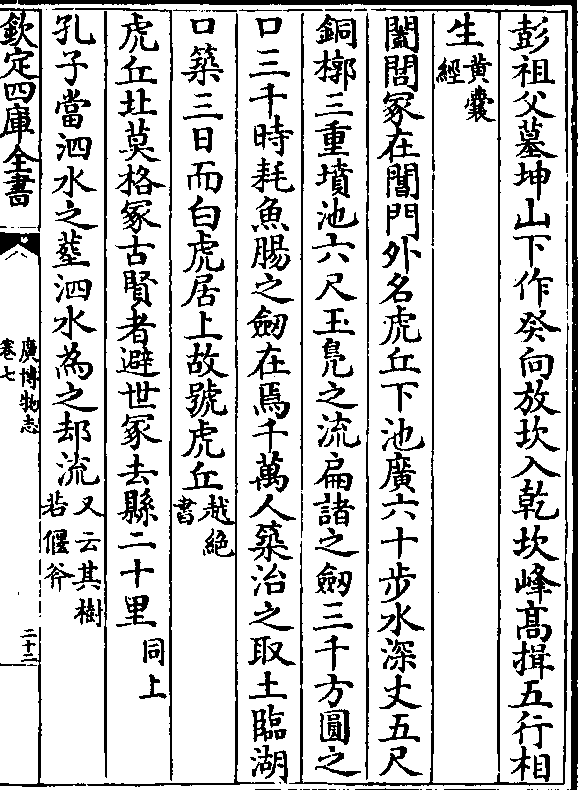 彭祖父墓坤山下作癸向放坎入乾坎峰髙揖五行相
生黄囊經
闔閭冢在閶門外名虎丘下池廣六十歩水深丈五尺
銅槨三重墳池六尺玉鳬之流扁諸之劒三千方圓之
口三千時耗魚腸之劒在焉千萬人築治之取土臨湖
口築三日而白虎居上故號虎丘越絶書
虎丘北莫格冢古賢者避世冢去縣二十里同上
孔子當泗水之葬泗水為之却流又云其樹若偃斧
欽定四庫全書
廣博物志
卷七
二十二